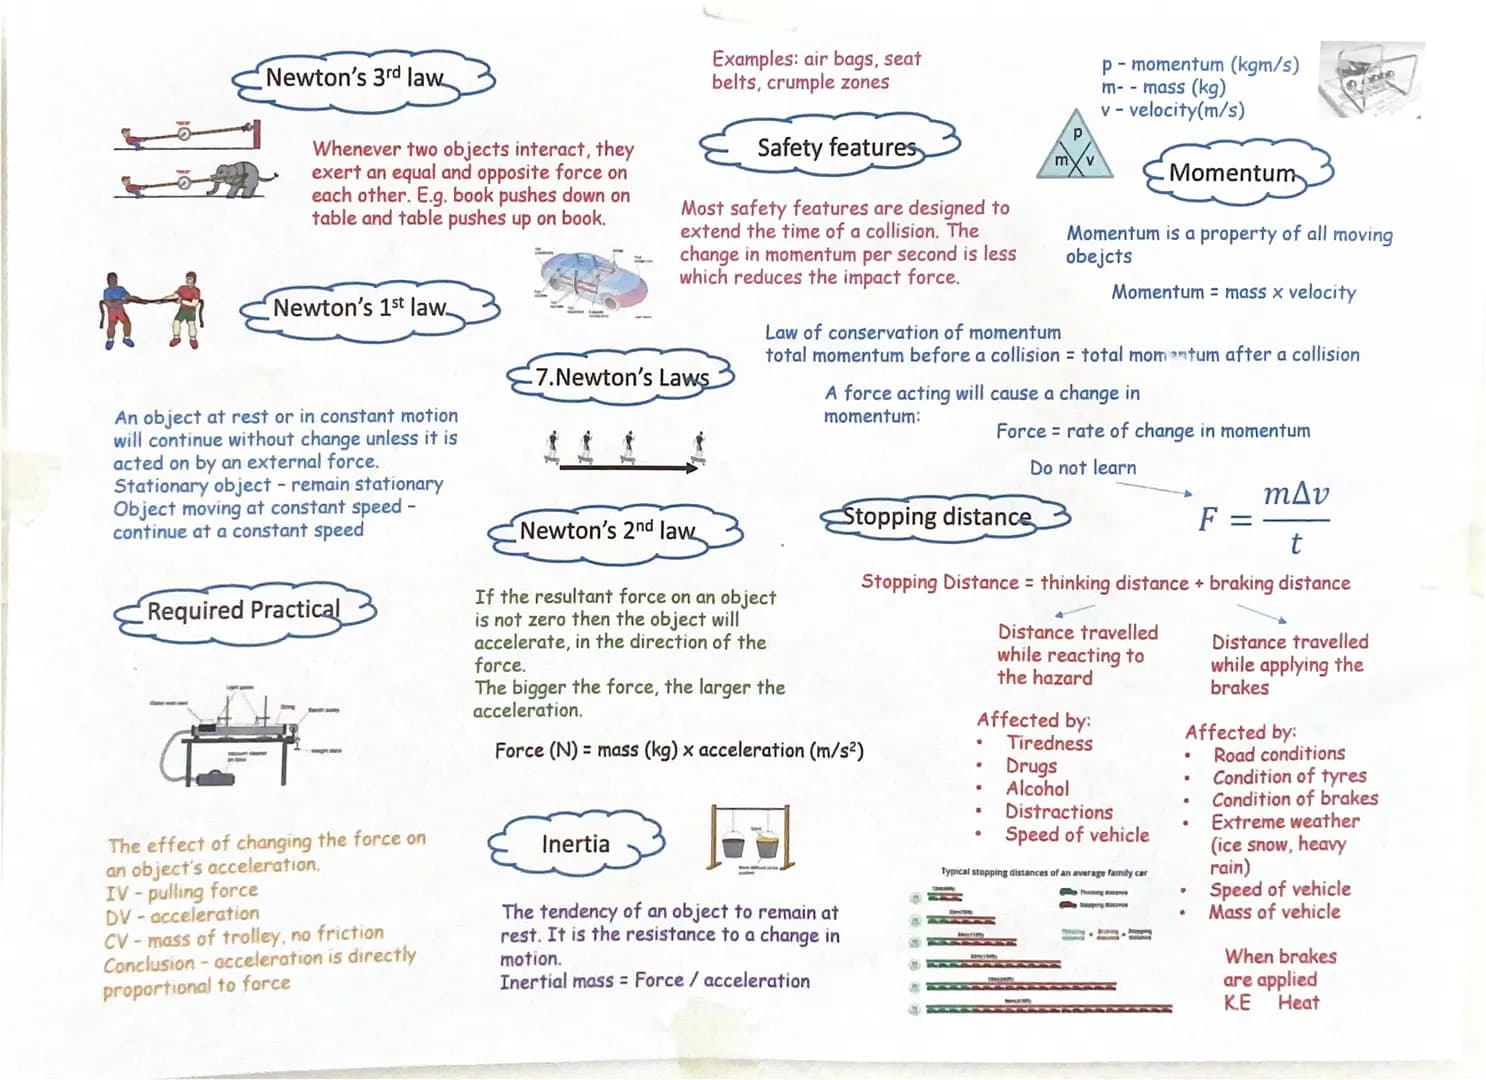 Newton's 3rd law
Whenever two objects interact, they
exert an equal and opposite force on
each other. E.g. book pushes down on
table and table pushes up on book.
Examples: air bags, seat
belts, crumple zones
Safety features
Most safety features are designed to
extend the time of a collision. The
change in momentum per second is less
which reduces the impact force.
p - momentum (kgm/s)
m- - mass (kg)
v - velocity(m/s)
p
m v
Momentum
Momentum is a property of all moving
obejcts
Momentum = mass x velocity
Law of conservation of momentum
total momentum before a collision = total momentum after a collision
A force acting will cause a change in
momentum:
Force = rate of change in momentum
Do not learn
F = mΔv
t
Newton's 1st law
An object at rest or in constant motion
will continue without change unless it is
acted on by an external force.
Stationary object - remain stationary
Object moving at constant speed -
continue at a constant speed
7.Newton's Laws
Newton's 2nd law
If the resultant force on an object
is not zero then the object will
accelerate, in the direction of the
force.
The bigger the force, the larger the
acceleration.
Force (N) = mass (kg) x acceleration (m/s²)
Stopping distance
Stopping Distance = thinking distance + braking distance
Distance travelled
while reacting to
the hazard
Affected by:
• Tiredness
• Drugs
• Alcohol
• Distractions
• Speed of vehicle
Distance travelled
while applying the
brakes
Affected by:
• Road conditions
• Condition of tyres
• Condition of brakes
• Extreme weather
(ice snow, heavy
rain)
• Speed of vehicle
• Mass of vehicle
When brakes
are applied
K.E Heat
Required Practical
Light gates
String
Bench pulley
Weight stack
Vacuum cleaner
The effect of changing the force on
an object's acceleration.
IV - pulling force
DV - acceleration
CV - mass of trolley, no friction
Conclusion - acceleration is directly
proportional to force
Inertia
The tendency of an object to remain at
rest. It is the resistance to a change in
motion.
Inertial mass = Force / acceleration
Typical stopping distances of an average family car
Thinking distance
Stopping distance
Thinking distance + Braking distance = Stopping distance